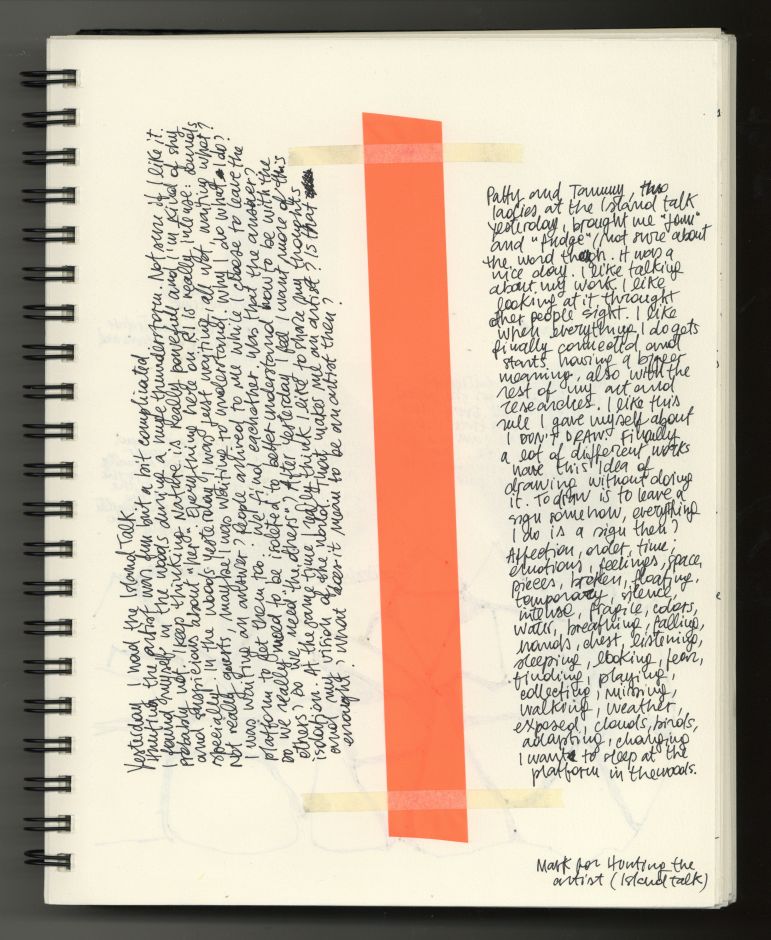 Yesterday I had the Island Talk,
Hunting the artist was fun but a bit complicated
I found myself in the woods during a huge thunderstorm. Not sure if I like it.
probably not. I keep thinking Nature is really powerful and I'm kind of shy
and suspicious about "her". Everything here on RI is really intense: sounds
specially. In the woods yesterday I was just waiting all wet, waiting what?
Not really guests, maybe I was waiting to understand, why I do what I do?
I was waiting an answer? People arrived to me while I chose to leave the
platform to get them too. We find eachother, was that the answer?
Do we really need to be isolated to better understand how to be with the
others? Do we need "the others"? After yesterday I feel I want more of this
isolation. At the same time I really think I like to share my thoughts
and my vision of the world. That makes me an artist? Is that
enought? What does it mean to be an artist then?
Patty and Tammy, two
ladies at the Island talk
yesterday, brought me
and "fudge" (not sure about
the word though. It was a
nice day. I like talking
about my work. I like
looking at it throught
other people sight. I like
when everything I do gets
finally connected and
starts having a bigger
meaning, also with the
rest of my art and
researches. I like this
rule I gave myself about
I DON'T DRAW. Finally
a lot of different works
have this idea of
drawing without doing
it. To draw is to leave a
sign somehow, everything
I do is a sign then?
Affection, order, time,
emotions, feelings, space,
pieces, broken, floating,
temporary, silence,
intense, fragile, colors,
walk, breathing, falling,
hands, chest, listening,
sleeping, looking, fear,
finding, playing,
collecting, missing,
walking, weather,
exposed, clouds, birds,
adapting, changing
I want to sleep at the
platform in the woods.
Mark for Hunting the
artist (Island talk)